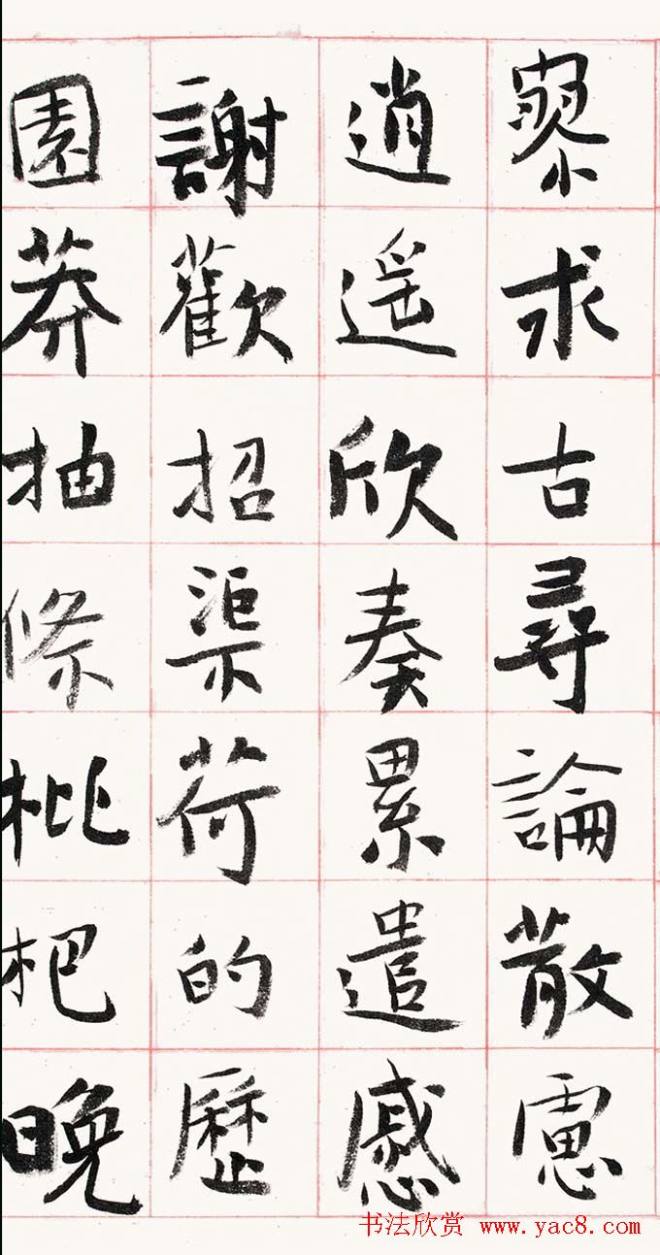 寥求古尋論散慮
逍遥欣奏累遣慼
謝歡招渠荷的歷
園莽抽條枇杷晚
书法欣赏 www.yac8.com